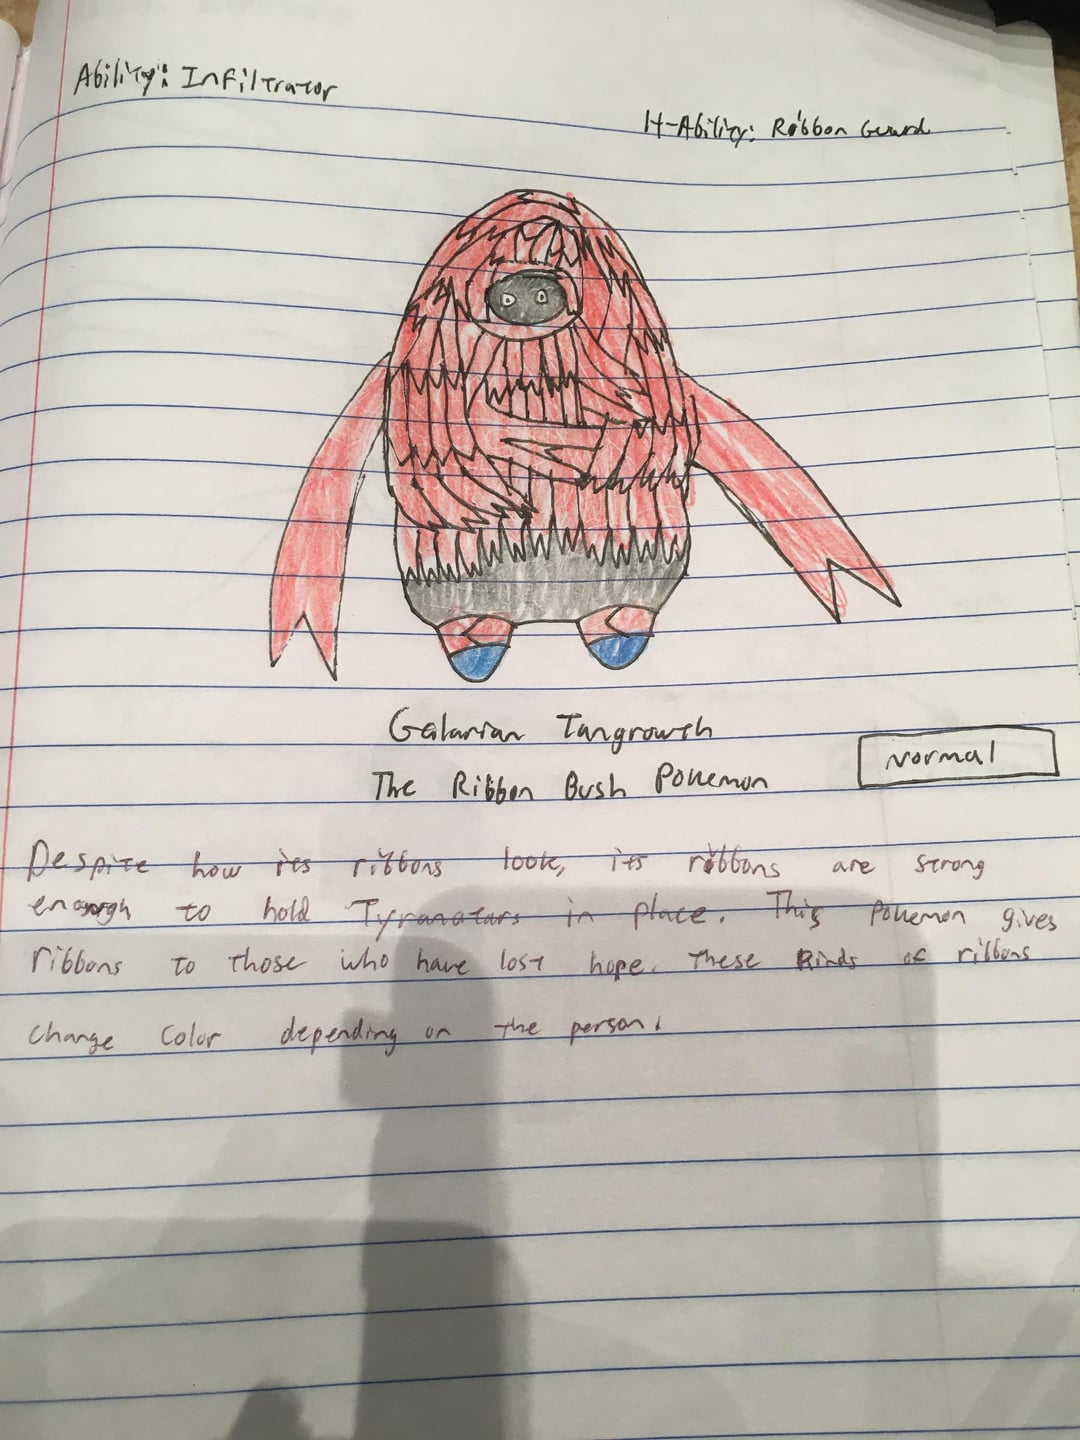 Ability: Infiltrator
H-Ability: Ribbon Guard
Galarian Tangrowth
The Ribbon Bush Pokemon
Normal
Despite how its ribbons look, its ribbons are strong
enough to hold Tyranatars in place. This Pokemon gives
ribbons to those who have lost hope. These kinds of ribbons
change color depending on the person.